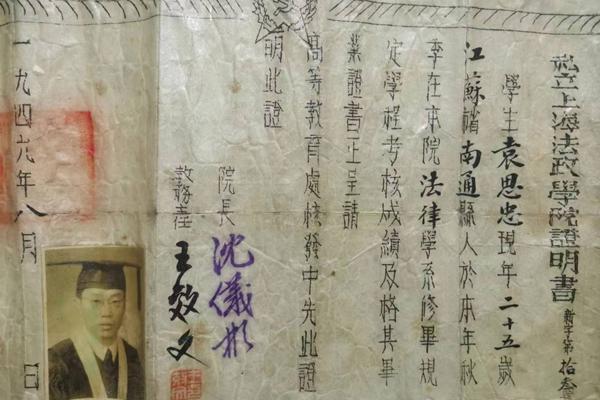 私立上海法政學院證明書
新字第拾叁
學生袁思忠現年二十五歲
江蘇省南通縣人於本年秋
季在本院法律學系修畢規
定學程考核成績及格其畢
業證書正呈請
高等教育處核發中先此證
明此證
院長 沈儀彬
教務主任 王效文
一九四九年八月 日